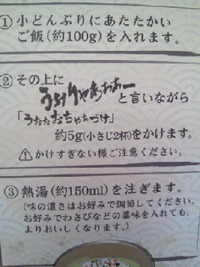 ①小どんぶりにあたたかい
ご飯(約100g)を入れます。
②その上に
と言いながら
約5g(小さじ2杯)をかけます。
⚠かけすぎない様ご注意ください。
③熱湯(約150ml)を注ぎます。
(味の濃さはお好みで調節してください。
お好みでわさびなどの薬味を入れても、
よりおいしくなります。)